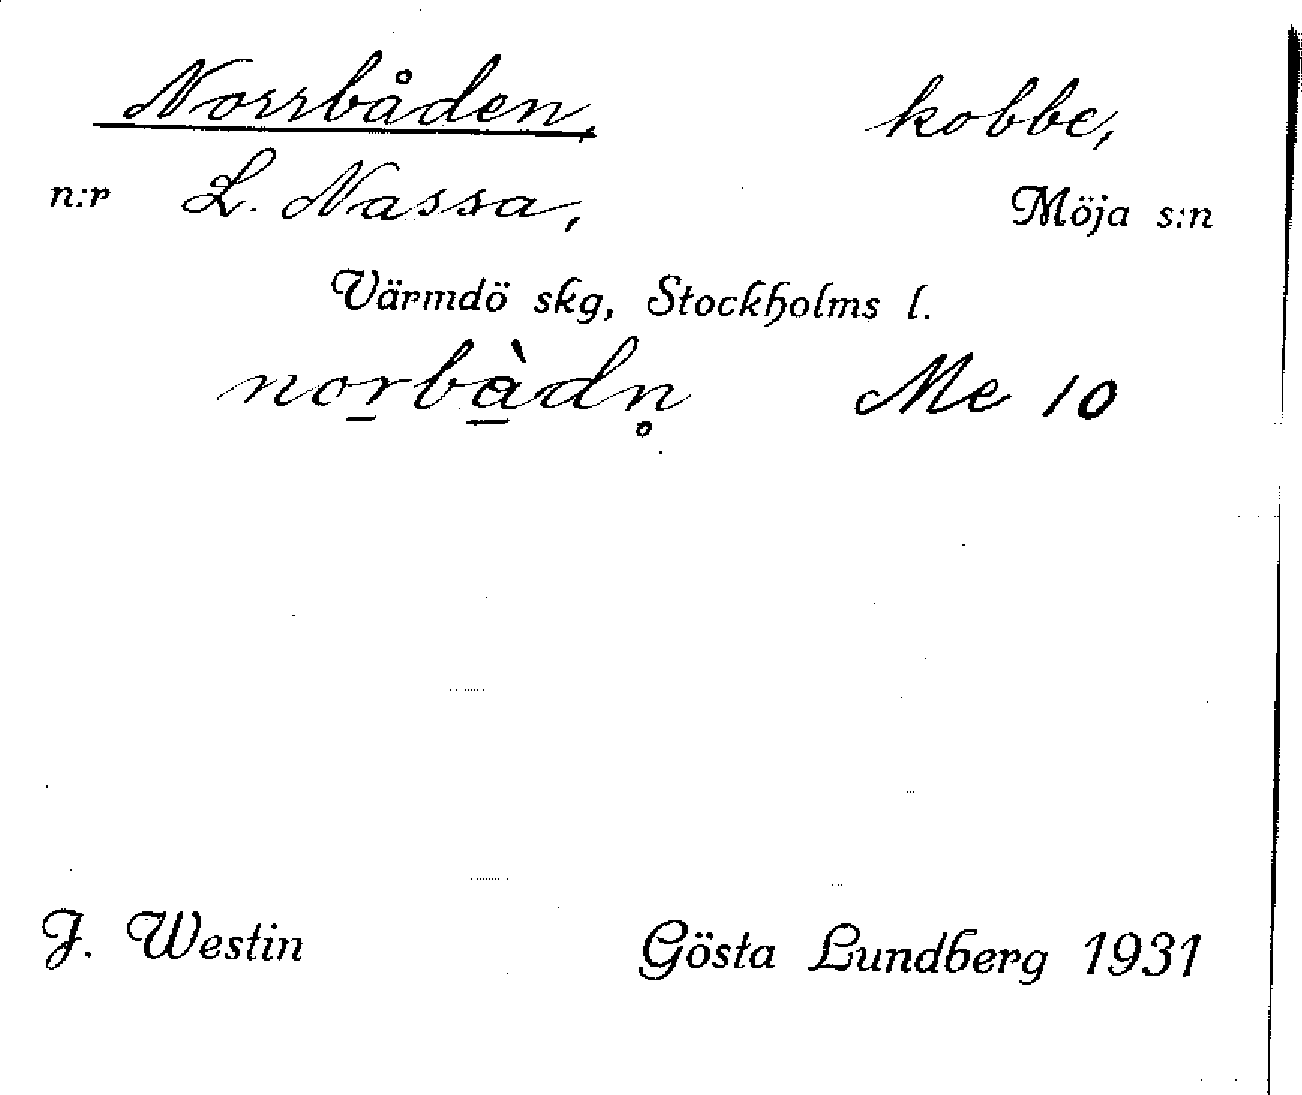 Norrbåden, kobbe,
n:r L. Nassa, Möja s:n
Värmdö skg, Stockholms l.
no̲rbà̲dn̥ Me 10
J. Westin Gösta Lundberg 1931